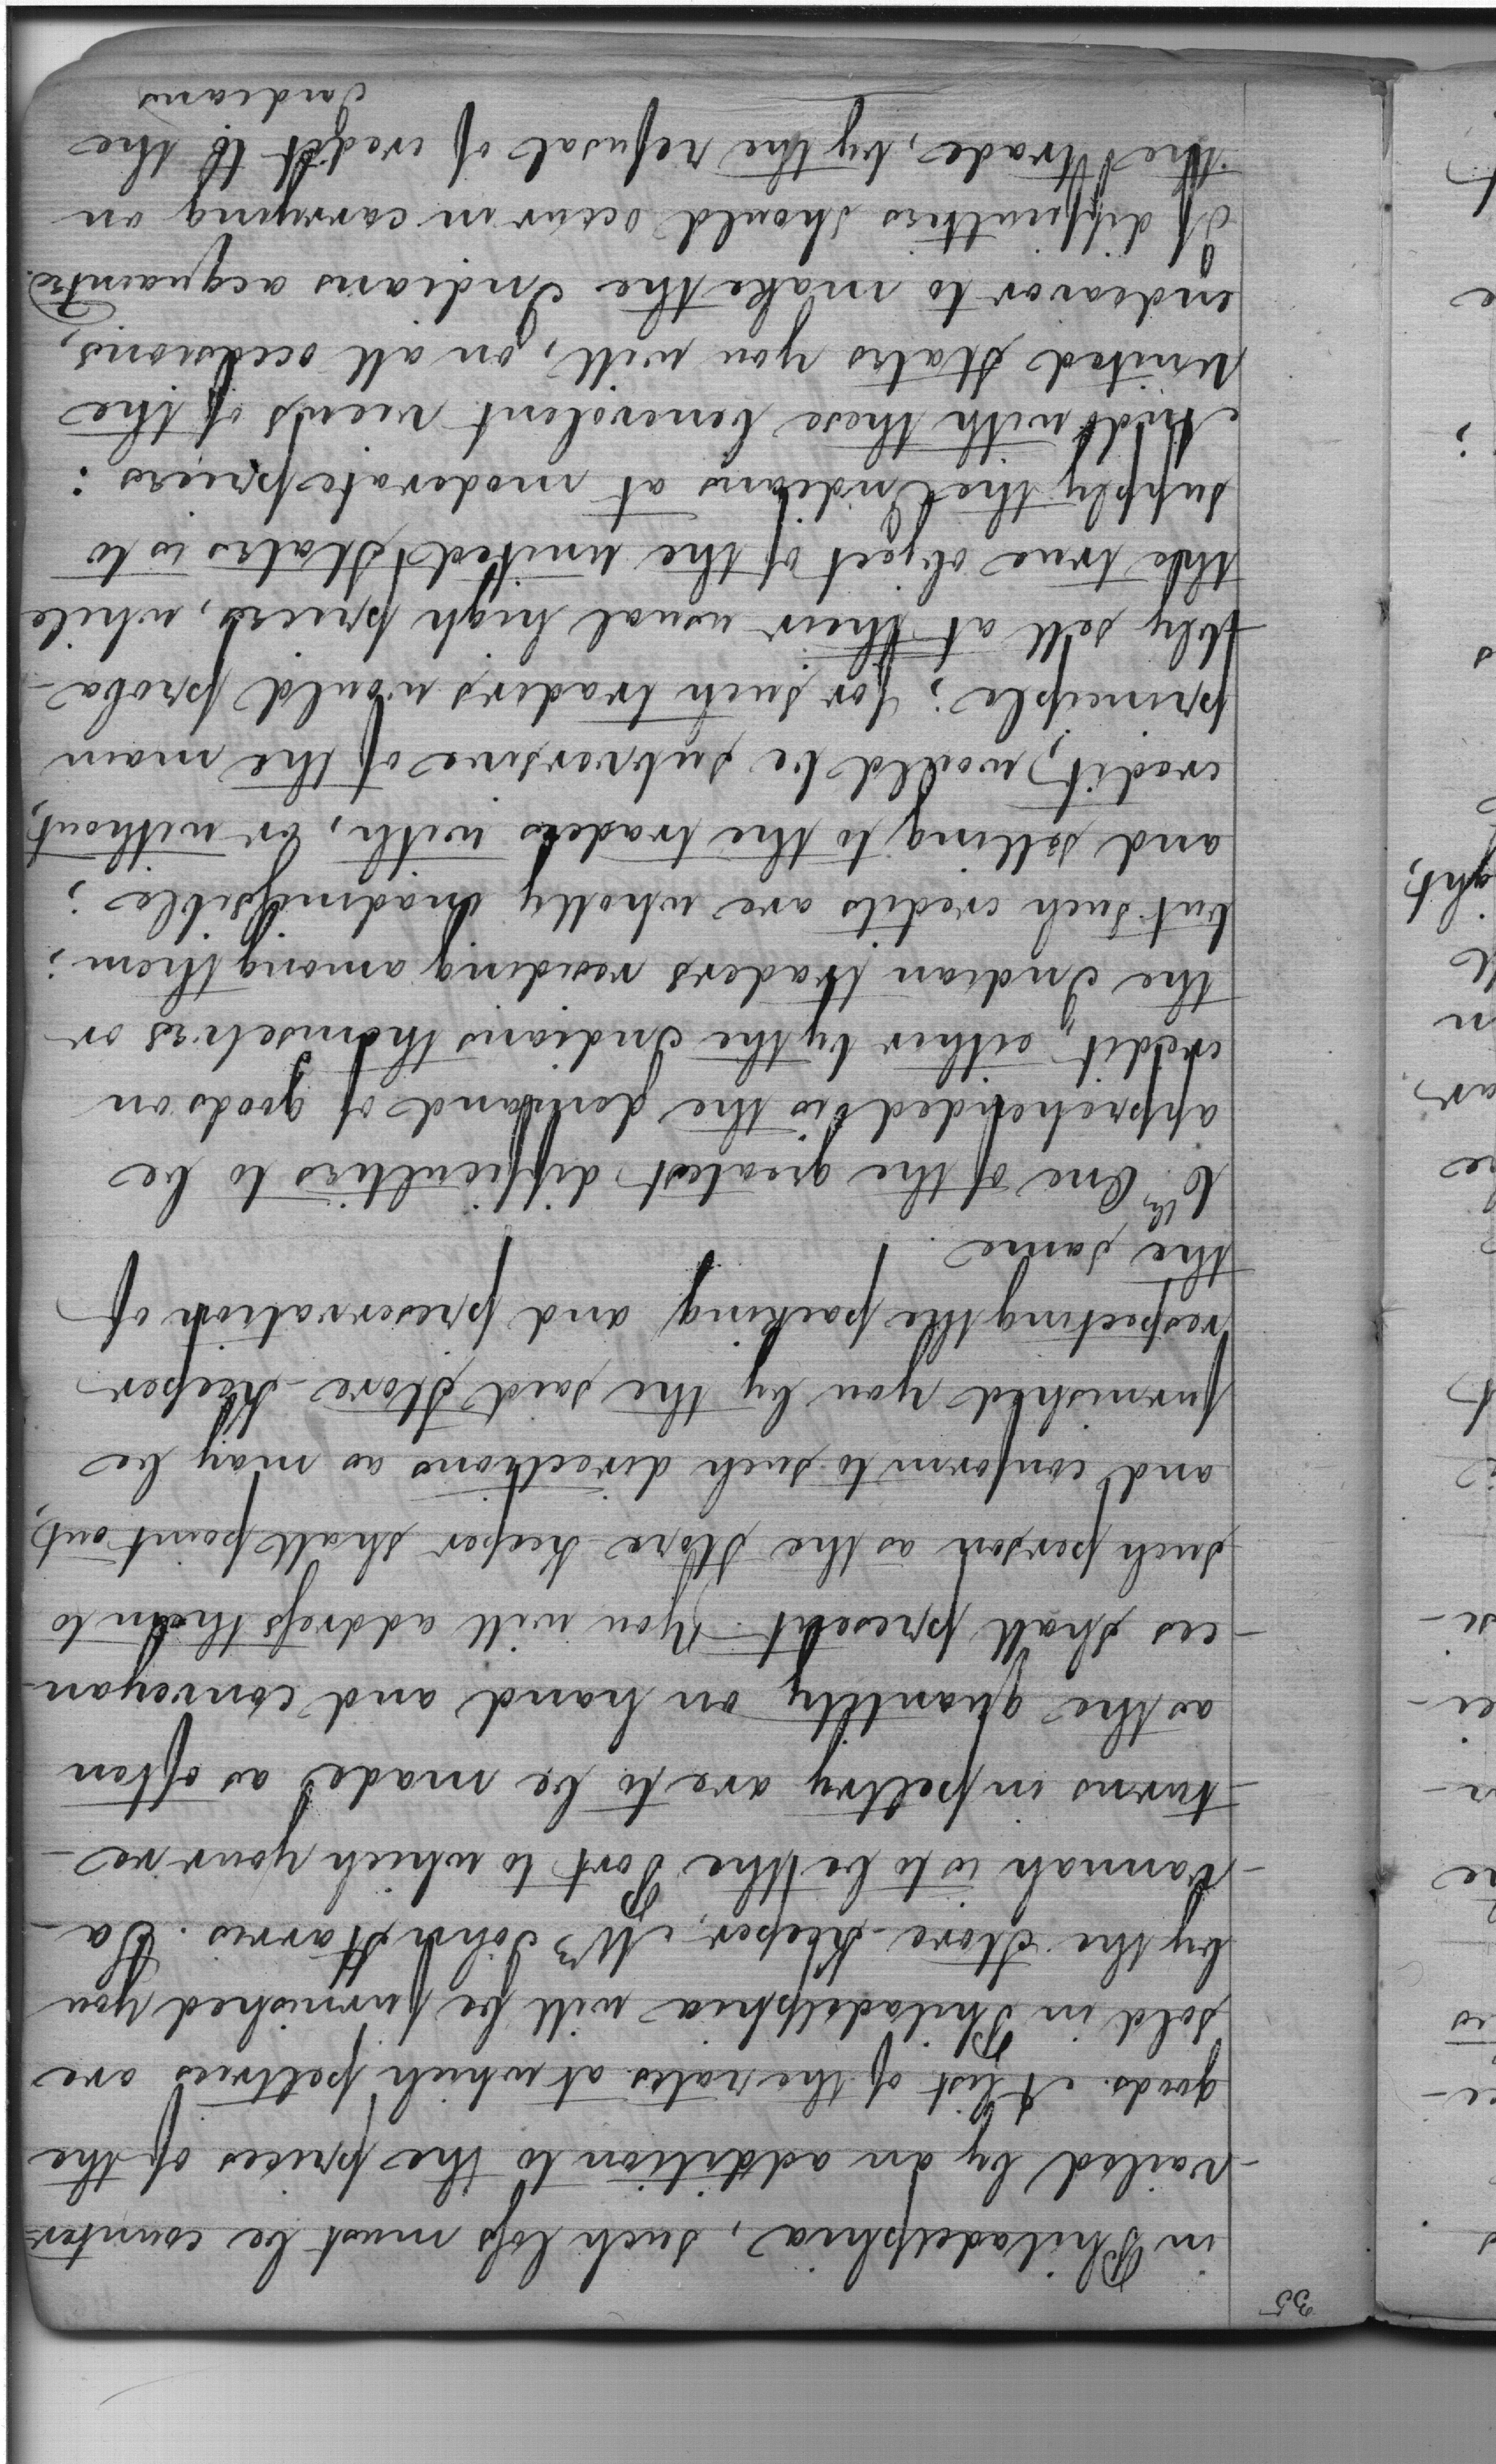 35
in Philadelphia, such loss must be counter=
-vailed by an addition to the prices of the
goods. A list of the rates at which peltries are
sold in Philadelphia will be furnished you
by the Store-Keeper, Mr John Harris. Sa-
-vannah is to be the Port to which your re-
-turns in peltry are to be made as often
as the quantity on hand and conveyan-
-ces shall present. You will address them to
such person as the Store Keeper shall point out,
and conform to such directions as may be
furnished you by the said Store-Keeper
respecting the packing and preservation of
the same.
6th One of the greatest difficulties to be
apprehended is the demand of goods on
credit, either by the Indians themselves or
the Indian traders residing among them;
but such credits are wholly inadmissible;
and selling to the traders with, or without,
credit, would be subversive of the main
principle; for such traders would proba-
-bly sell at their usual high prices, while
the true object of the United States is to
supply the Indians at moderate prices:
And with these benevolent views of the
United States you will, on all occasions,
endeavor to make the Indians acquainted.
If difficulties should occur in carrying on
the trade, by the refusal of credit to the
Indians